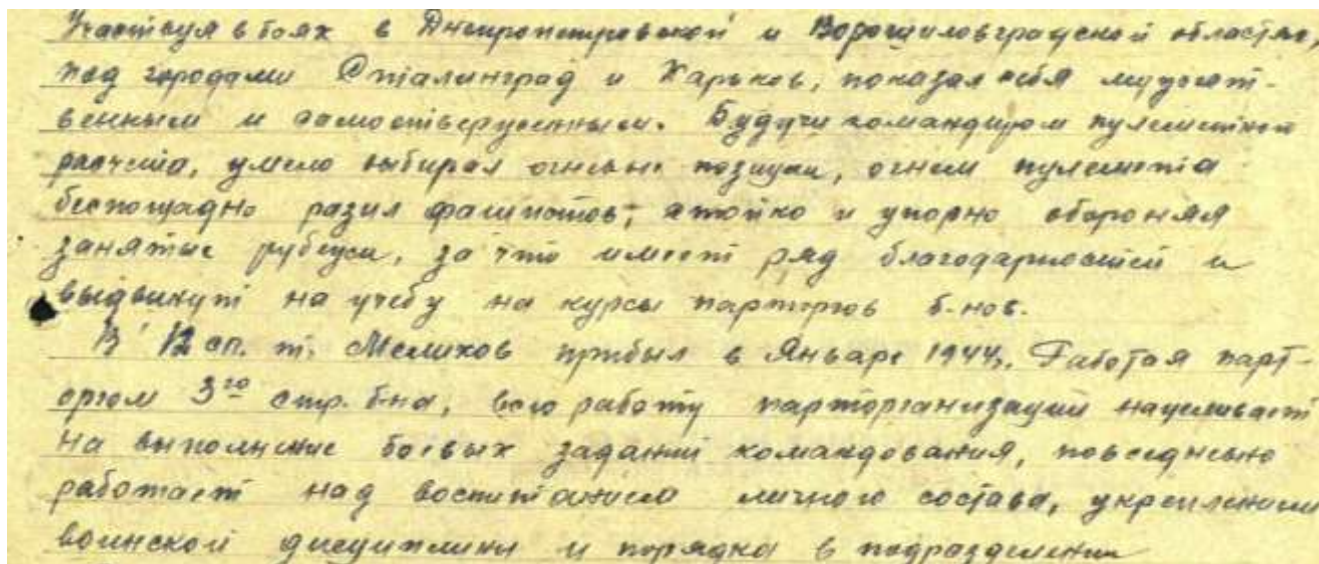 Участвуя в боях в Днепропетровской и Ворошиловградской областях,
под городами Сталинград и Харьков, показал себя мужест-
венным и самоотверженным. Будучи командиром пулеметного
расчета, умело выбирал огневые позиции, огнем пулемета
беспощадно разил фашистов, стойко и упорно обороняя
занятые рубежи, за что имеет ряд благодарностей и
выдвинут на учебу на курсы парторгов б-нов.
В 12 сп. т. Мелихов прибыл в Январе 1944г. Работая парт-
оргом 3го стр. б-на, всю работу парторганизаций нацеливает
на выполнение боевых заданий командования, повседневно
работает над воспитанием личного состава, укреплением
воинской дисциплины и порядка в подразделении